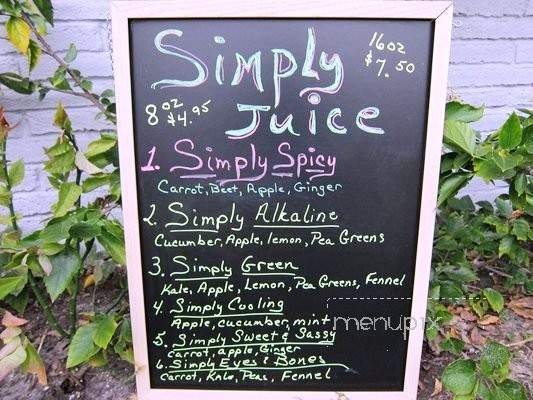 Simply
16 oz
$7.50
8 oz
$4.95
Juice
1. Simply Spicy
Carrot, Beet, Apple, Ginger
2. Simply Alkaline
Cucumber, Apple, lemon, Pea Greens
3. Simply Green
Kale, Apple, Lemon, Pea Greens, Fennel
4. Simply Cooling
Apple, cucumber, mint
menupix
5. Simply Sweet & Sassy
Carrot, apple, Ginger
6. Simply Eyes & Bones
Carrot, Kale, Peas, Fennel